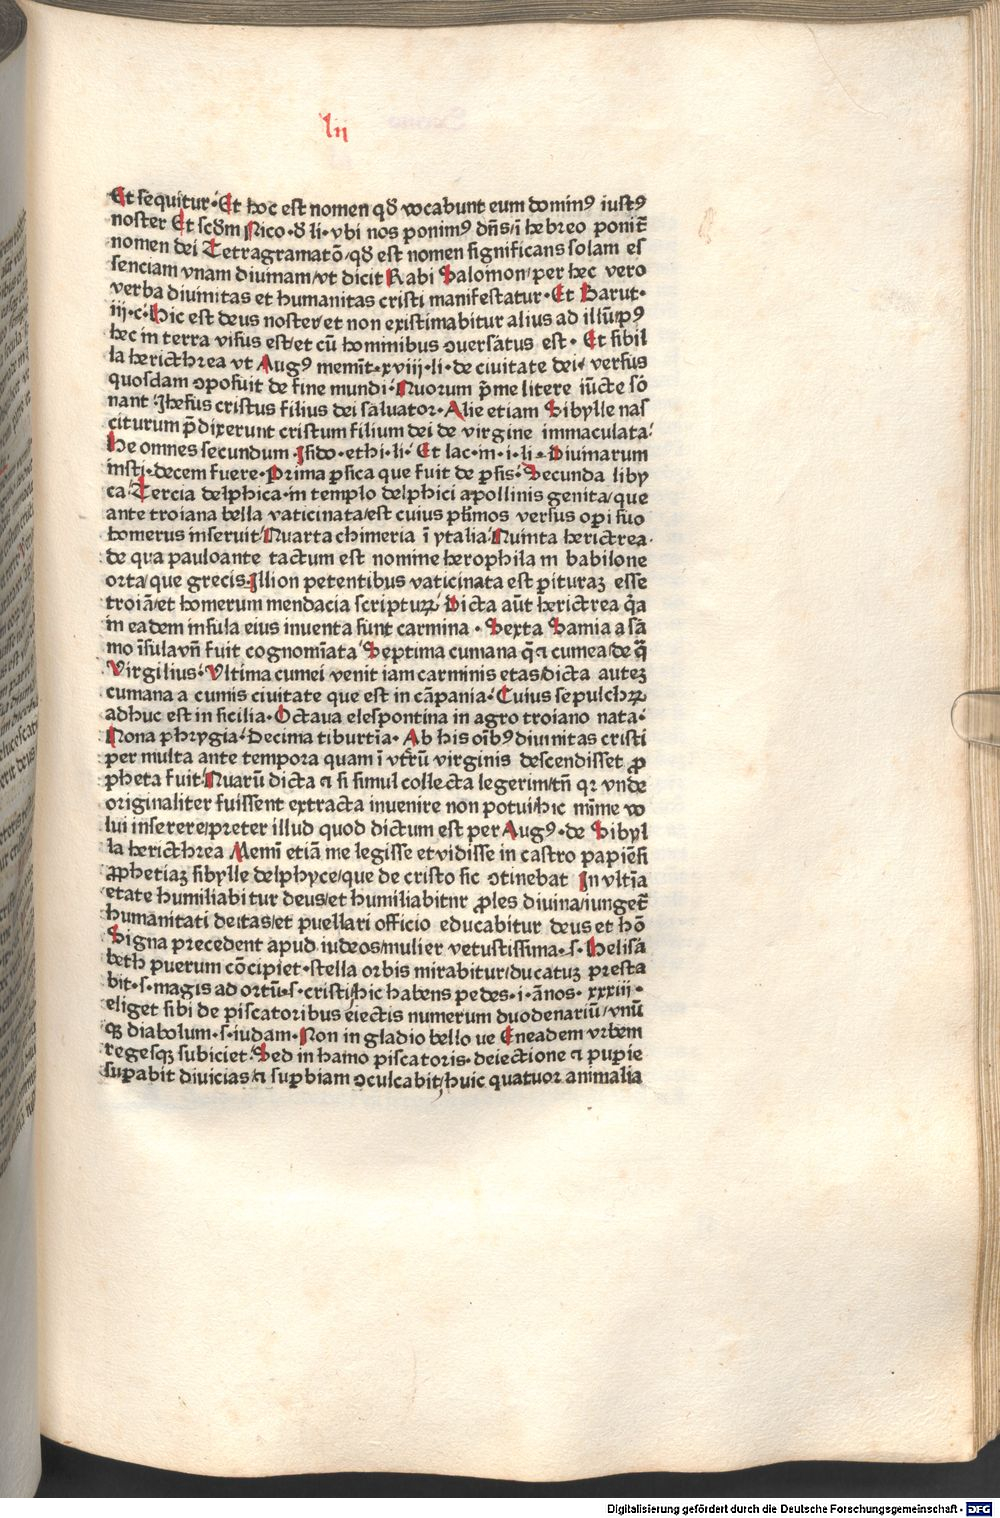 lii
Et sequitur·Et hoc est nomen qd̄ vocabunt eum dominꝰ iustꝰ
noster Et scd̄m Nico·d̄ li·vbi nos ponimꝰ dn̄s/ī hebreo ponit̄
nomen dei Tetragramatō/qd̄ est nomen significans solam es
senciam vnam diuinam/vt dicit Rabi Salomon/per hec vero
verba diuinitas et humanitas cristi manifestatur·Et Barut·
iij·c·Hic est deus noster/et non existimabitur alius ad illū/pꝰ
hec in terra visus est/et cū hominibus ꝯuersatus est· Et sibil
la hericthrea vt Augꝰ memīt·xviij·li·de ciuitate dei· versus
quosdam ꝯposuit de fine mundi·Quorum p̄me litere iūcte so
nant·Jhesus cristus filius dei saluator·Alie etiam Sibylle nas
citurum p̄dixerunt cristum filium dei de virgine immaculata·
He omnes secundum ·Jsido·ethi·li· Et lac·in·i·li·Diuinarum
insti·decem fuere·Prima ꝑsica que fuit de ꝑsis·Secunda liby
ca·Tercia delphica·in templo delphici apollinis genita/que
ante troiana bella vaticinata/est cuius pl̄imos versus oꝑi suo
homerus inseruit·Quarta chimeria ī ytalia·Quinta herictrea·
de qua pauloante tactum est nomine herophila in babilone
orta/que grecis·Illion petentibus vaticinata est ꝑituraꝫ esse
troiā/et homerum mendacia scripturꝝ·Dicta aūt herictrea q̄a
in eadem insula eius inuenta sunt carmina· Sexta Samia a sā
mo īsula/vn̄ fuit cognomīata·Septima cumana q̄ ⁊ cumea/de q̄
Virgilius·Vltima cumei venit iam carminis etas/dicta auteꝫ
cumana a cumis ciuitate que est in cāpania·Cuius sepulchꝝ
adhuc est in sicilia·Octaua elespontina in agro troiano nata·
Nona phrygia·Decima tiburtīa· Ab his oībꝰ diuinitas cristi
per multa ante tempora quam ī vt̄rū virginis descendisset ꝓ
pheta fuit·Quarū dicta ⁊ si simul collecta legerim/tn̄ qꝛ vnde
originaliter fuissent extracta inuenire non potui/hic mīme vo
lui inserere/preter illud quod dictum est per Augꝰ·de Sibyl
la hericthrea Memī etiā me legisse et vidisse in castro papiēsi
ꝓphetiaꝫ sibylle delphyce/que de cristo sic ꝯtinebat Jn vltīa
etate humiliabitur deus/et humiliabitur ꝓles diuina/iunget̄
humanitati deitas/et puellari officio educabitur deus et hō
Signa precedent apud iudeos/mulier vetustissima·s·Helisa
beth puerum cōcipiet·stella orbis mirabitur/ducatuꝫ presta
bit·s·magis ad ortū·s·cristi/hic habens pedes·i·ānos·xxxiij·
eliget sibi de piscatoribus eiectis numerum duodenariū/vnū
qꝫ diabolum·s·iudam·Non in gladio bello ue Eneadem vrbem
regesqꝫ subiciet·Sed in hamo piscatoris·deiectione ⁊ pupie
suꝑabit diuicias/⁊ suꝑbiam ꝯculcabit/huic quatuor animalia
Digitalisierung gefördert durch die Deutsche Forschungsgemeinschaft - DFG